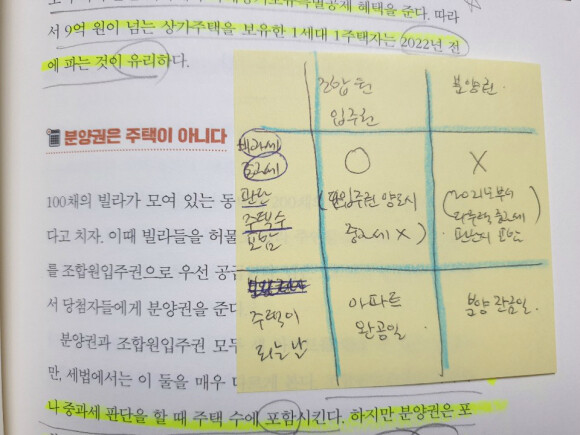 서 9억 원이 넘는 상가주택을 보유한 1세대 1주택자는 2022년 전
에 파는 것이 유리하다.
분양권은 주택이 아니다
100채의 빌라가 모여 있는 동
다고 치자. 이때 빌라들을 허물
를 조합원입주권으로 우선 공급
서 당첨자들에게 분양권을 준다
분양권과 조합원입주권 모두
만, 세법에서는 이 둘을 매우 다르게
나 중과세 판단을 할 때 주택 수에 포함시킨다. 하지만 분양권은 포
조합원
입주권
분양권
비과세
중과세
판단
주택수
포함
O
(입주권 양도시
중과세 X)
X
(2021년부터
다주택 중과세
판단시 포함)
주택이
되는 날
아파트
완공일
분양 잔금일